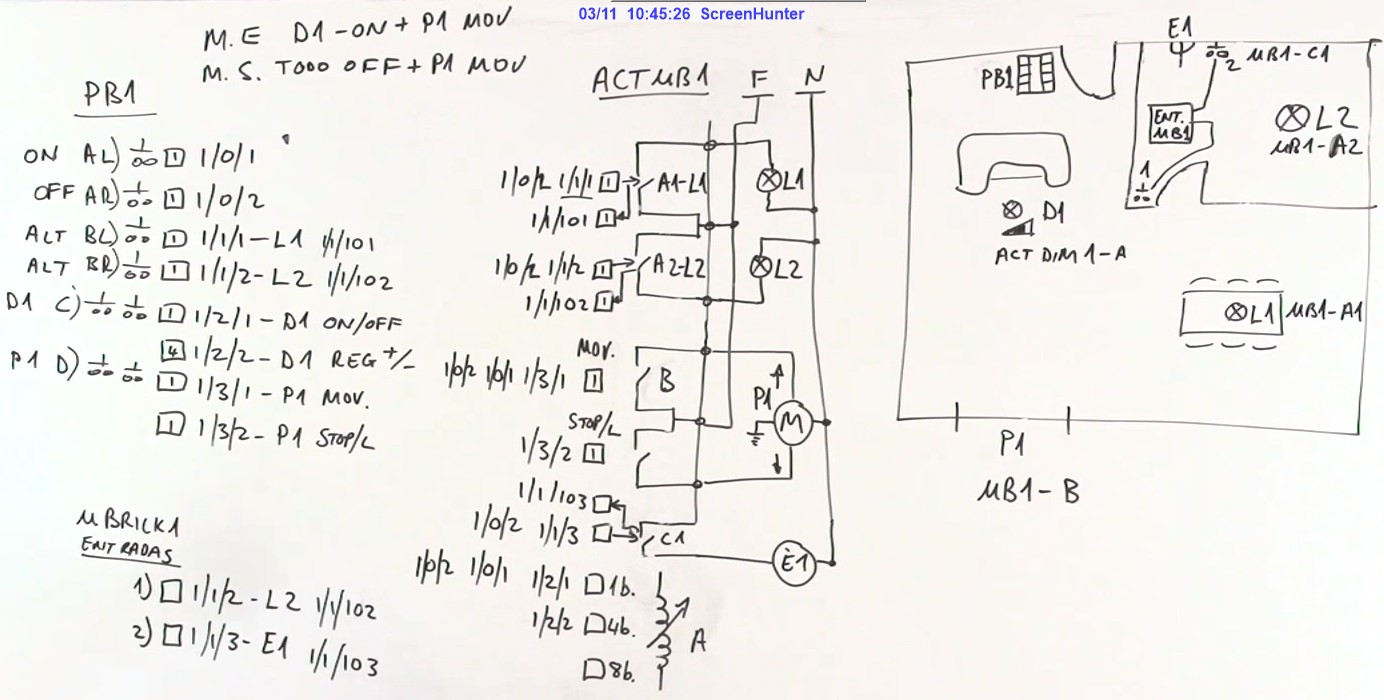 03/11 10:45:26 ScreenHunter
M.E D1-ON + P1 MOV
M.S. TODO OFF + P1 MOV
PB1
ON AL) 1 1 1/0/1
OFF AR) 1 1 1/0/2
ALT BL) 1 1 1/1/1-L1 1/1/101
ALT BR) 1 1 1/1/2-L2 1/1/102
D1 C) 1 1 1 1/2/1-D1 ON/OFF
4 1/2/2-D1 REG +/-
P1 D) 1 1 1 1/3/1-P1 MOV.
1 1/3/2-P1 STOP/L
µBRICK1
ENTRADAS
1) 1/1/2-L2 1/1/102
2) 1/1/3-E1 1/1/103
ACTµB1 F N
1/0/2 1/1/1 1 A1-L1 L1
1/1/101 1
1/0/2 1/1/2 1 A2-L2 L2
1/1/102 1
MOV.
1/0/2 1/0/1 1/3/1 1 B
P1 M
STOP/L
1/3/2 1
1/1/103
1/0/2 1/1/3 C1
E1
1/0/2 1/0/1 1/2/1 1b.
1/2/2 4b.
8b.
A
E1
PB1
2 µB1-C1
ENT.
µB1
L2
µB1-A2
1
D1
ACT DIM1-A
L1 µB1-A1
P1
µB1-B